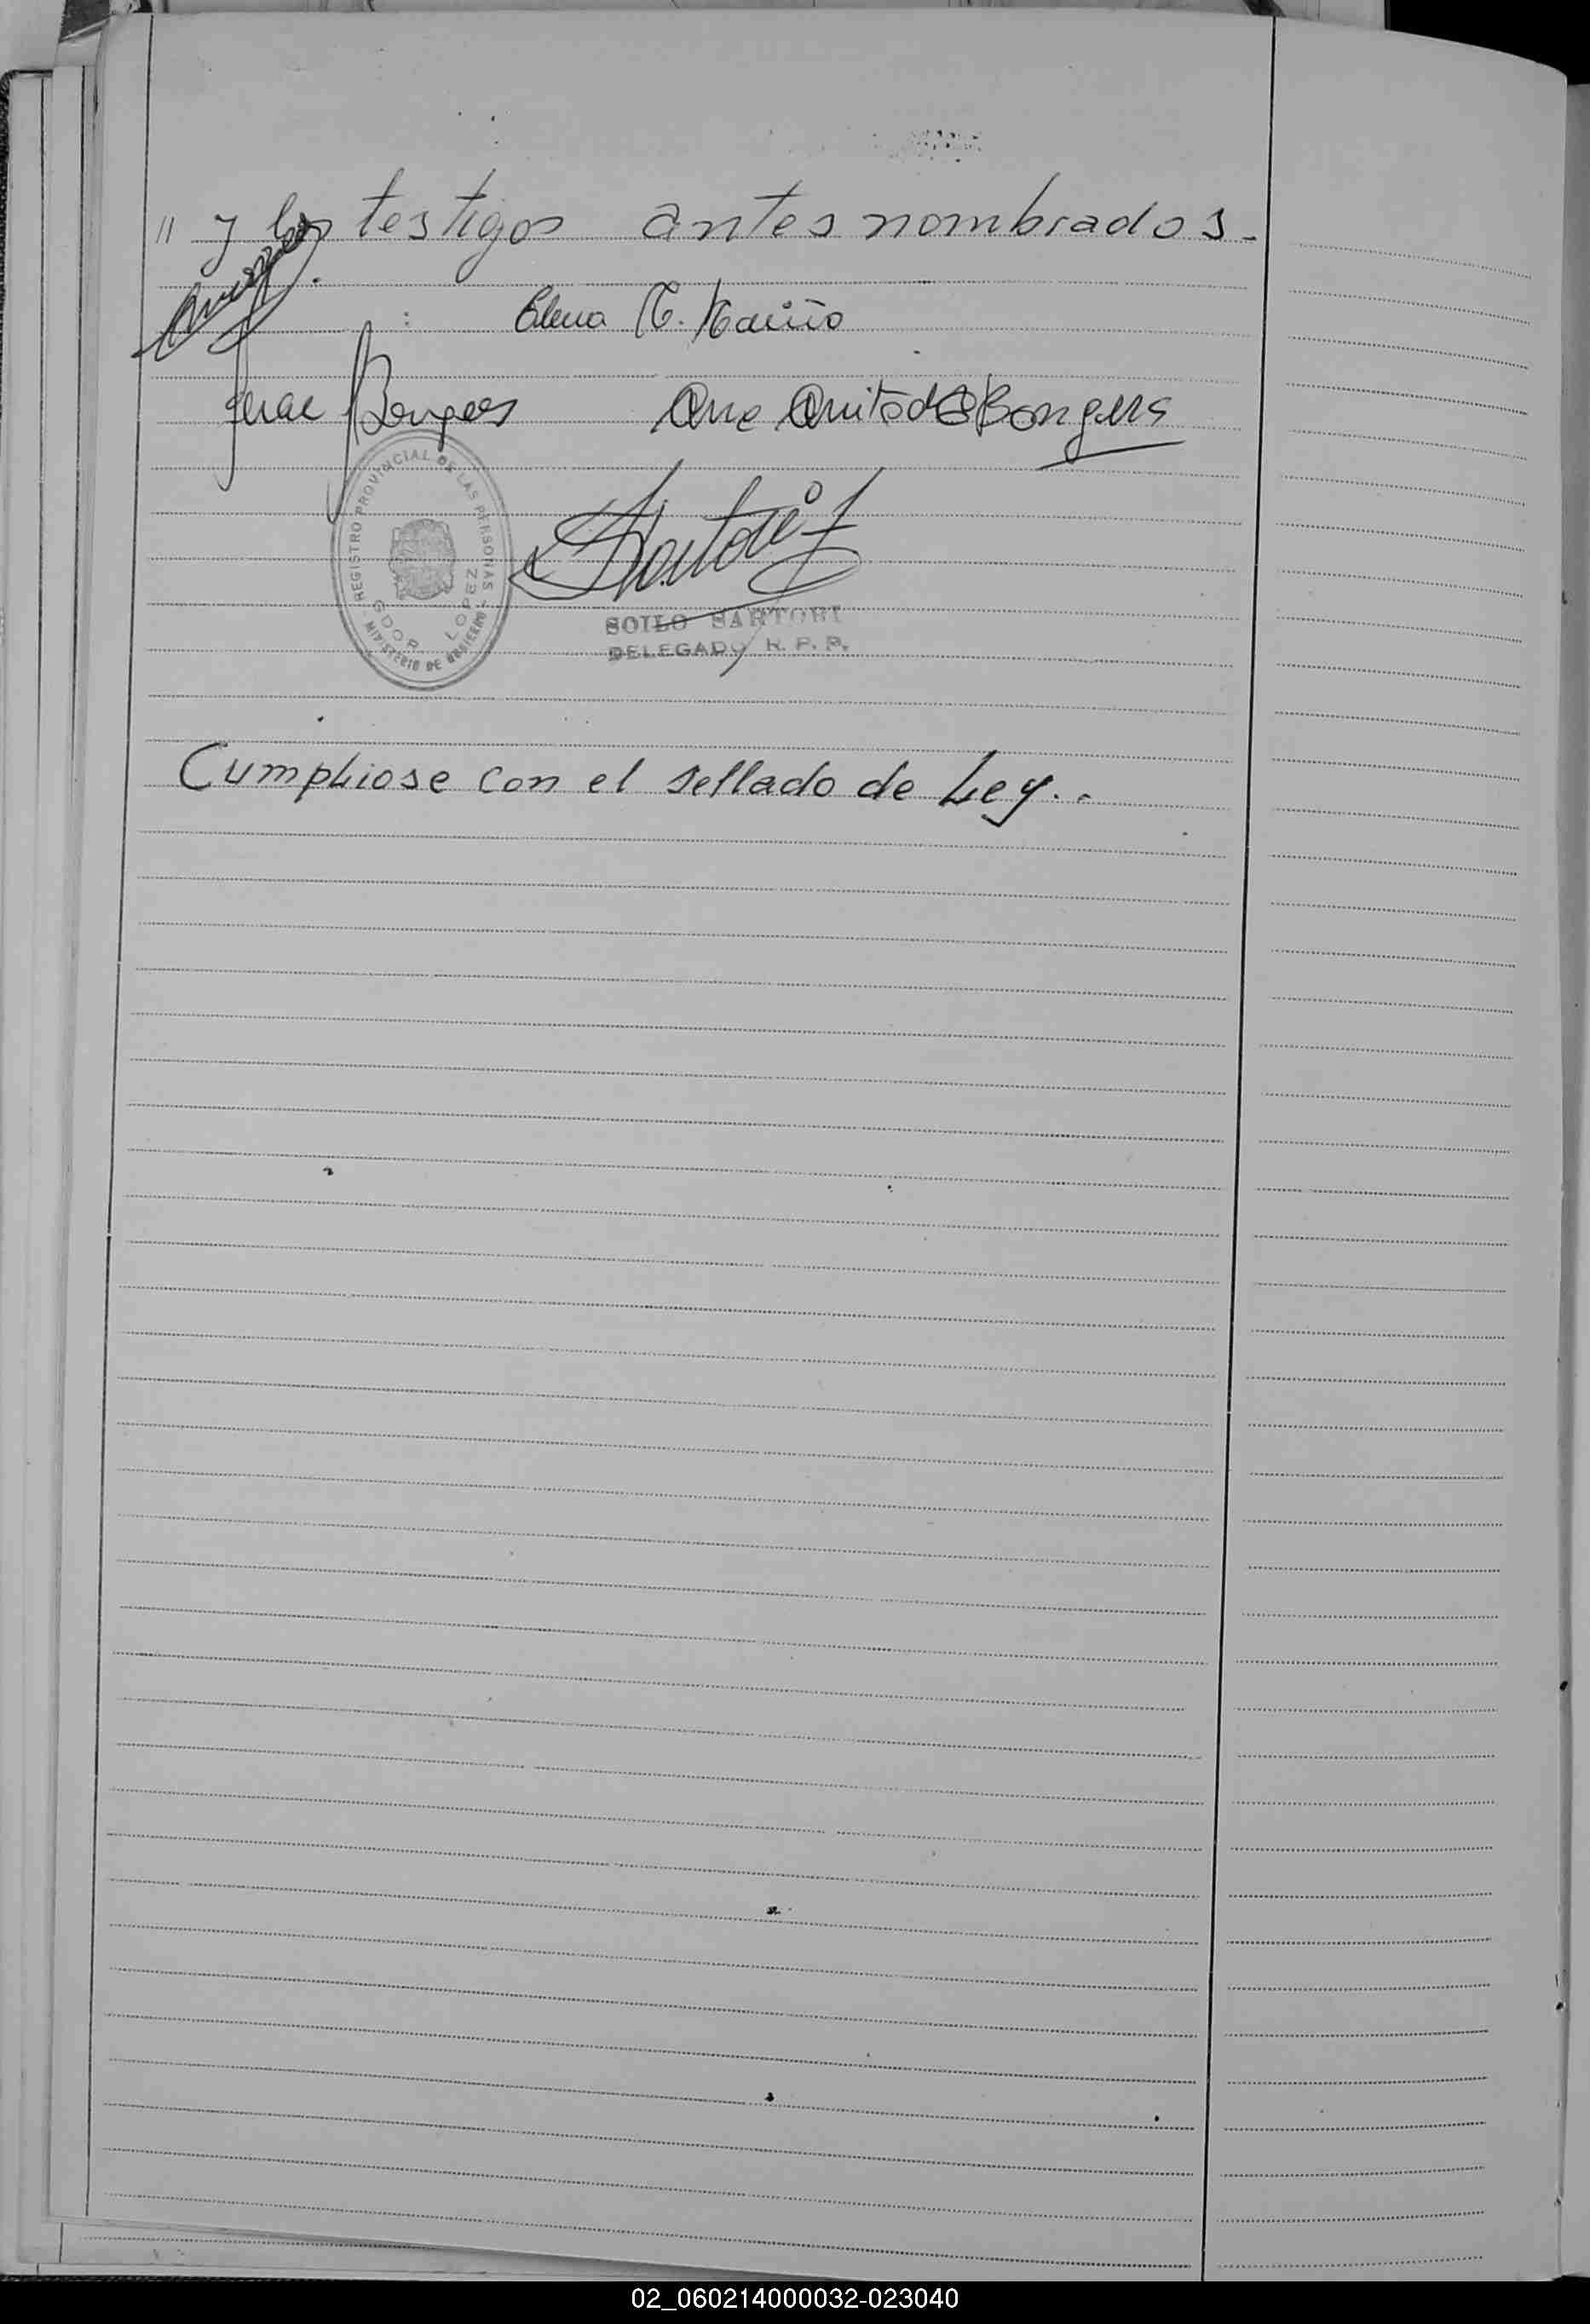 " y los testigos antes nombrados.-
Elena
Bongers
Ana Anita de Bongers
REGISTRO PROVINCIAL DE LAS PERSONAS
GDOR LOPEZ
MINISTERIO DE GOBIERNO
SOILO SARTORI
DELEGADO R. P. P.
Cumpliose con el sellado de Ley..
02_060214000032-023040